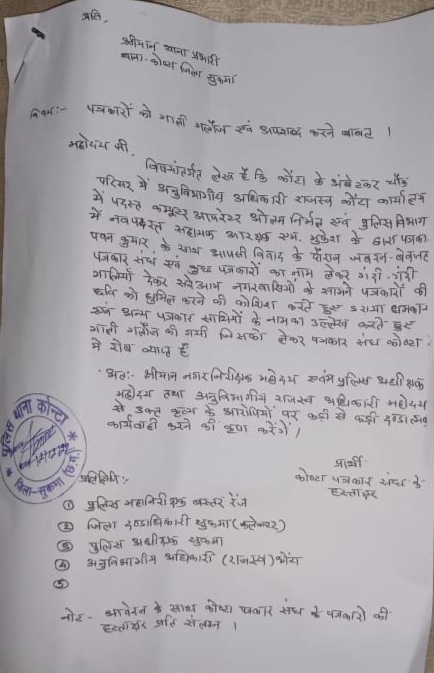 प्रति,
श्रीमान थाना प्रभारी
थाना- कोन्टा जिला सुकमा
विषय:- पत्रकारों को गाली गलौज एवं अपशब्द करने बाबत ।
महोदय जी,
विषयांतर्गत लेख है कि कोंटा के अंबेडकर चौक
परिसर में अनुविभागीय अधिकारी राजस्व कोंटा कार्यालय
में पदस्थ कम्प्युटर आपरेटर निर्मल एवं पुलिस विभाग
में नवपदस्थ सहायक आरक्षक मुकेश के द्वारा पत्रकार
पवन कुमार के साथ आपसी विवाद के दौरान जबरन-बेवजह
पत्रकार संघ एवं कुछ पत्रकारों का नाम लेकर गंदी-गंदी
गालियाँ देकर सरेआम नगरवासियों के सामने पत्रकारों की
छवि को धुमिल करने की कोशिश करते हुए डराया धमकाया
एवं अन्य पत्रकार साथियों के नाम का उल्लेख करते हुए
गाली गलौज की गयी जिसको लेकर पत्रकार संघ कोन्टा
में रोष व्याप्त है
अतः- श्रीमान नगर निरीक्षक महोदय एवंम पुलिस अधीक्षक
महोदय तथा अनुविभागीय राजस्व अधिकारी महोदय
से उक्त कृत्य के आरोपियों पर कड़ी से कड़ी दण्डात्मक
कार्यवाही करने की कृपा करेंगे ।
प्रार्थी
कोन्टा पत्रकार संघ के
हस्ताक्षर
पुलिस थाना कोन्टा
जिला-सुकमा (छ.ग.)
प्रतिलिपि:-
① पुलिस महानिरीक्षक बस्तर रेंज
② जिला दण्डाधिकारी सुकमा (कलेक्टर)
③ पुलिस अधीक्षक सुकमा
④ अनुविभागीय अधिकारी (राजस्व) कोंटा
⑤
नोट- आवेदन के साथ कोन्टा पत्रकार संघ के पत्रकारों की
हस्ताक्षर प्रति संलग्न ।